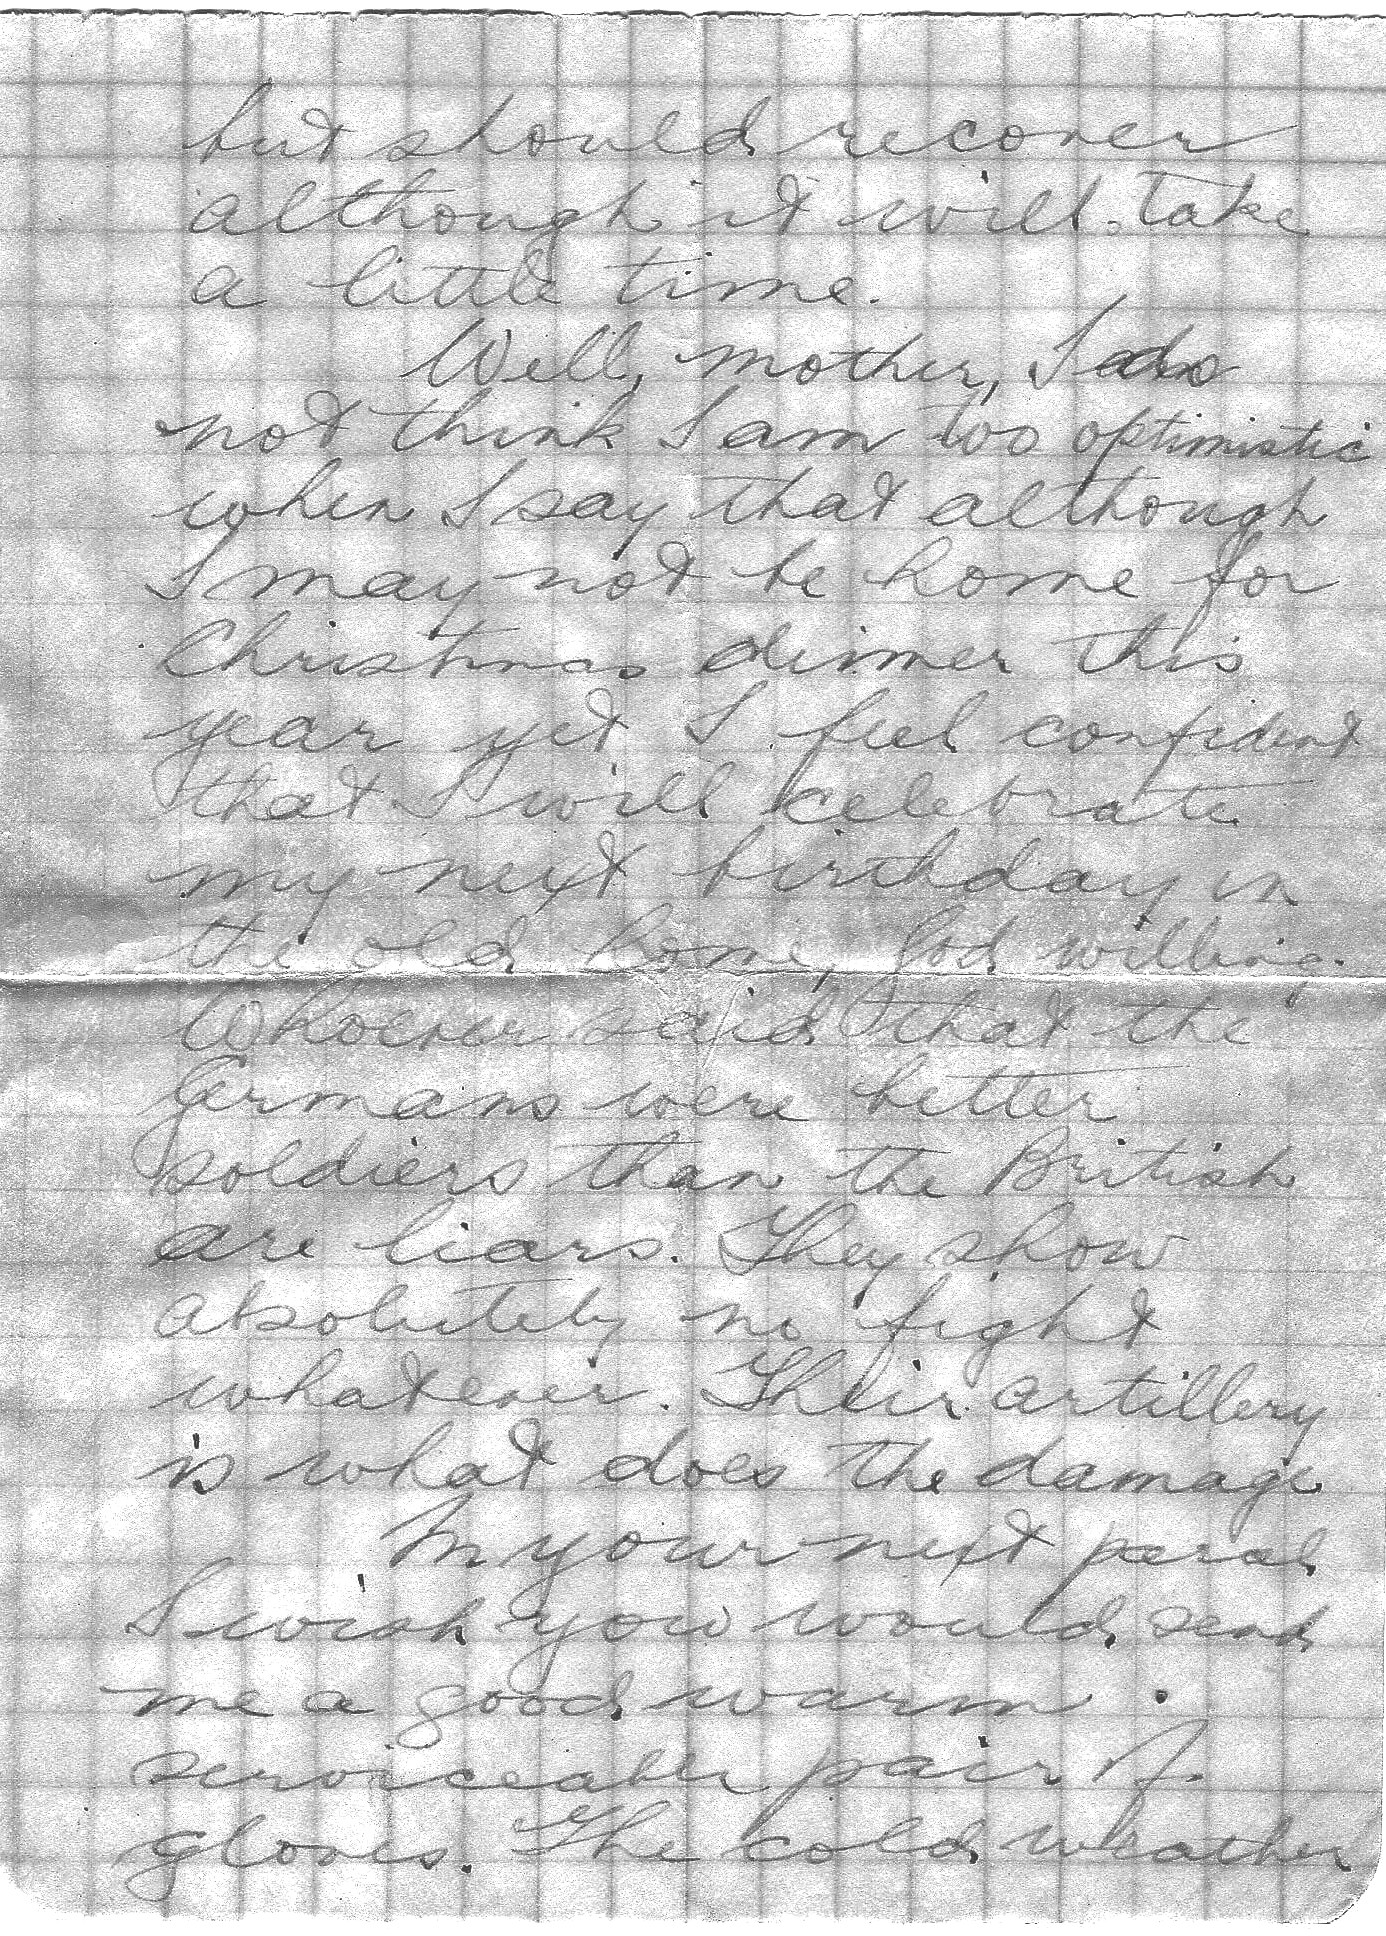 but should recover
although it will take
a little time.
Well, mother, I do
not think I am too optimistic
when I say that although
I may not be home for
Christmas dinner this
year yet I feel confident
that I will celebrate
my next birthday in
the old home, God willing.
Whoever said that the
Germans were better
soldiers than the British
are liars. They show
absolutely no fight
whatever. Their artillery
is what does the damage
In your next parcel
I wish you would send
me a good warm
serviceable pair of
gloves. The cold weather